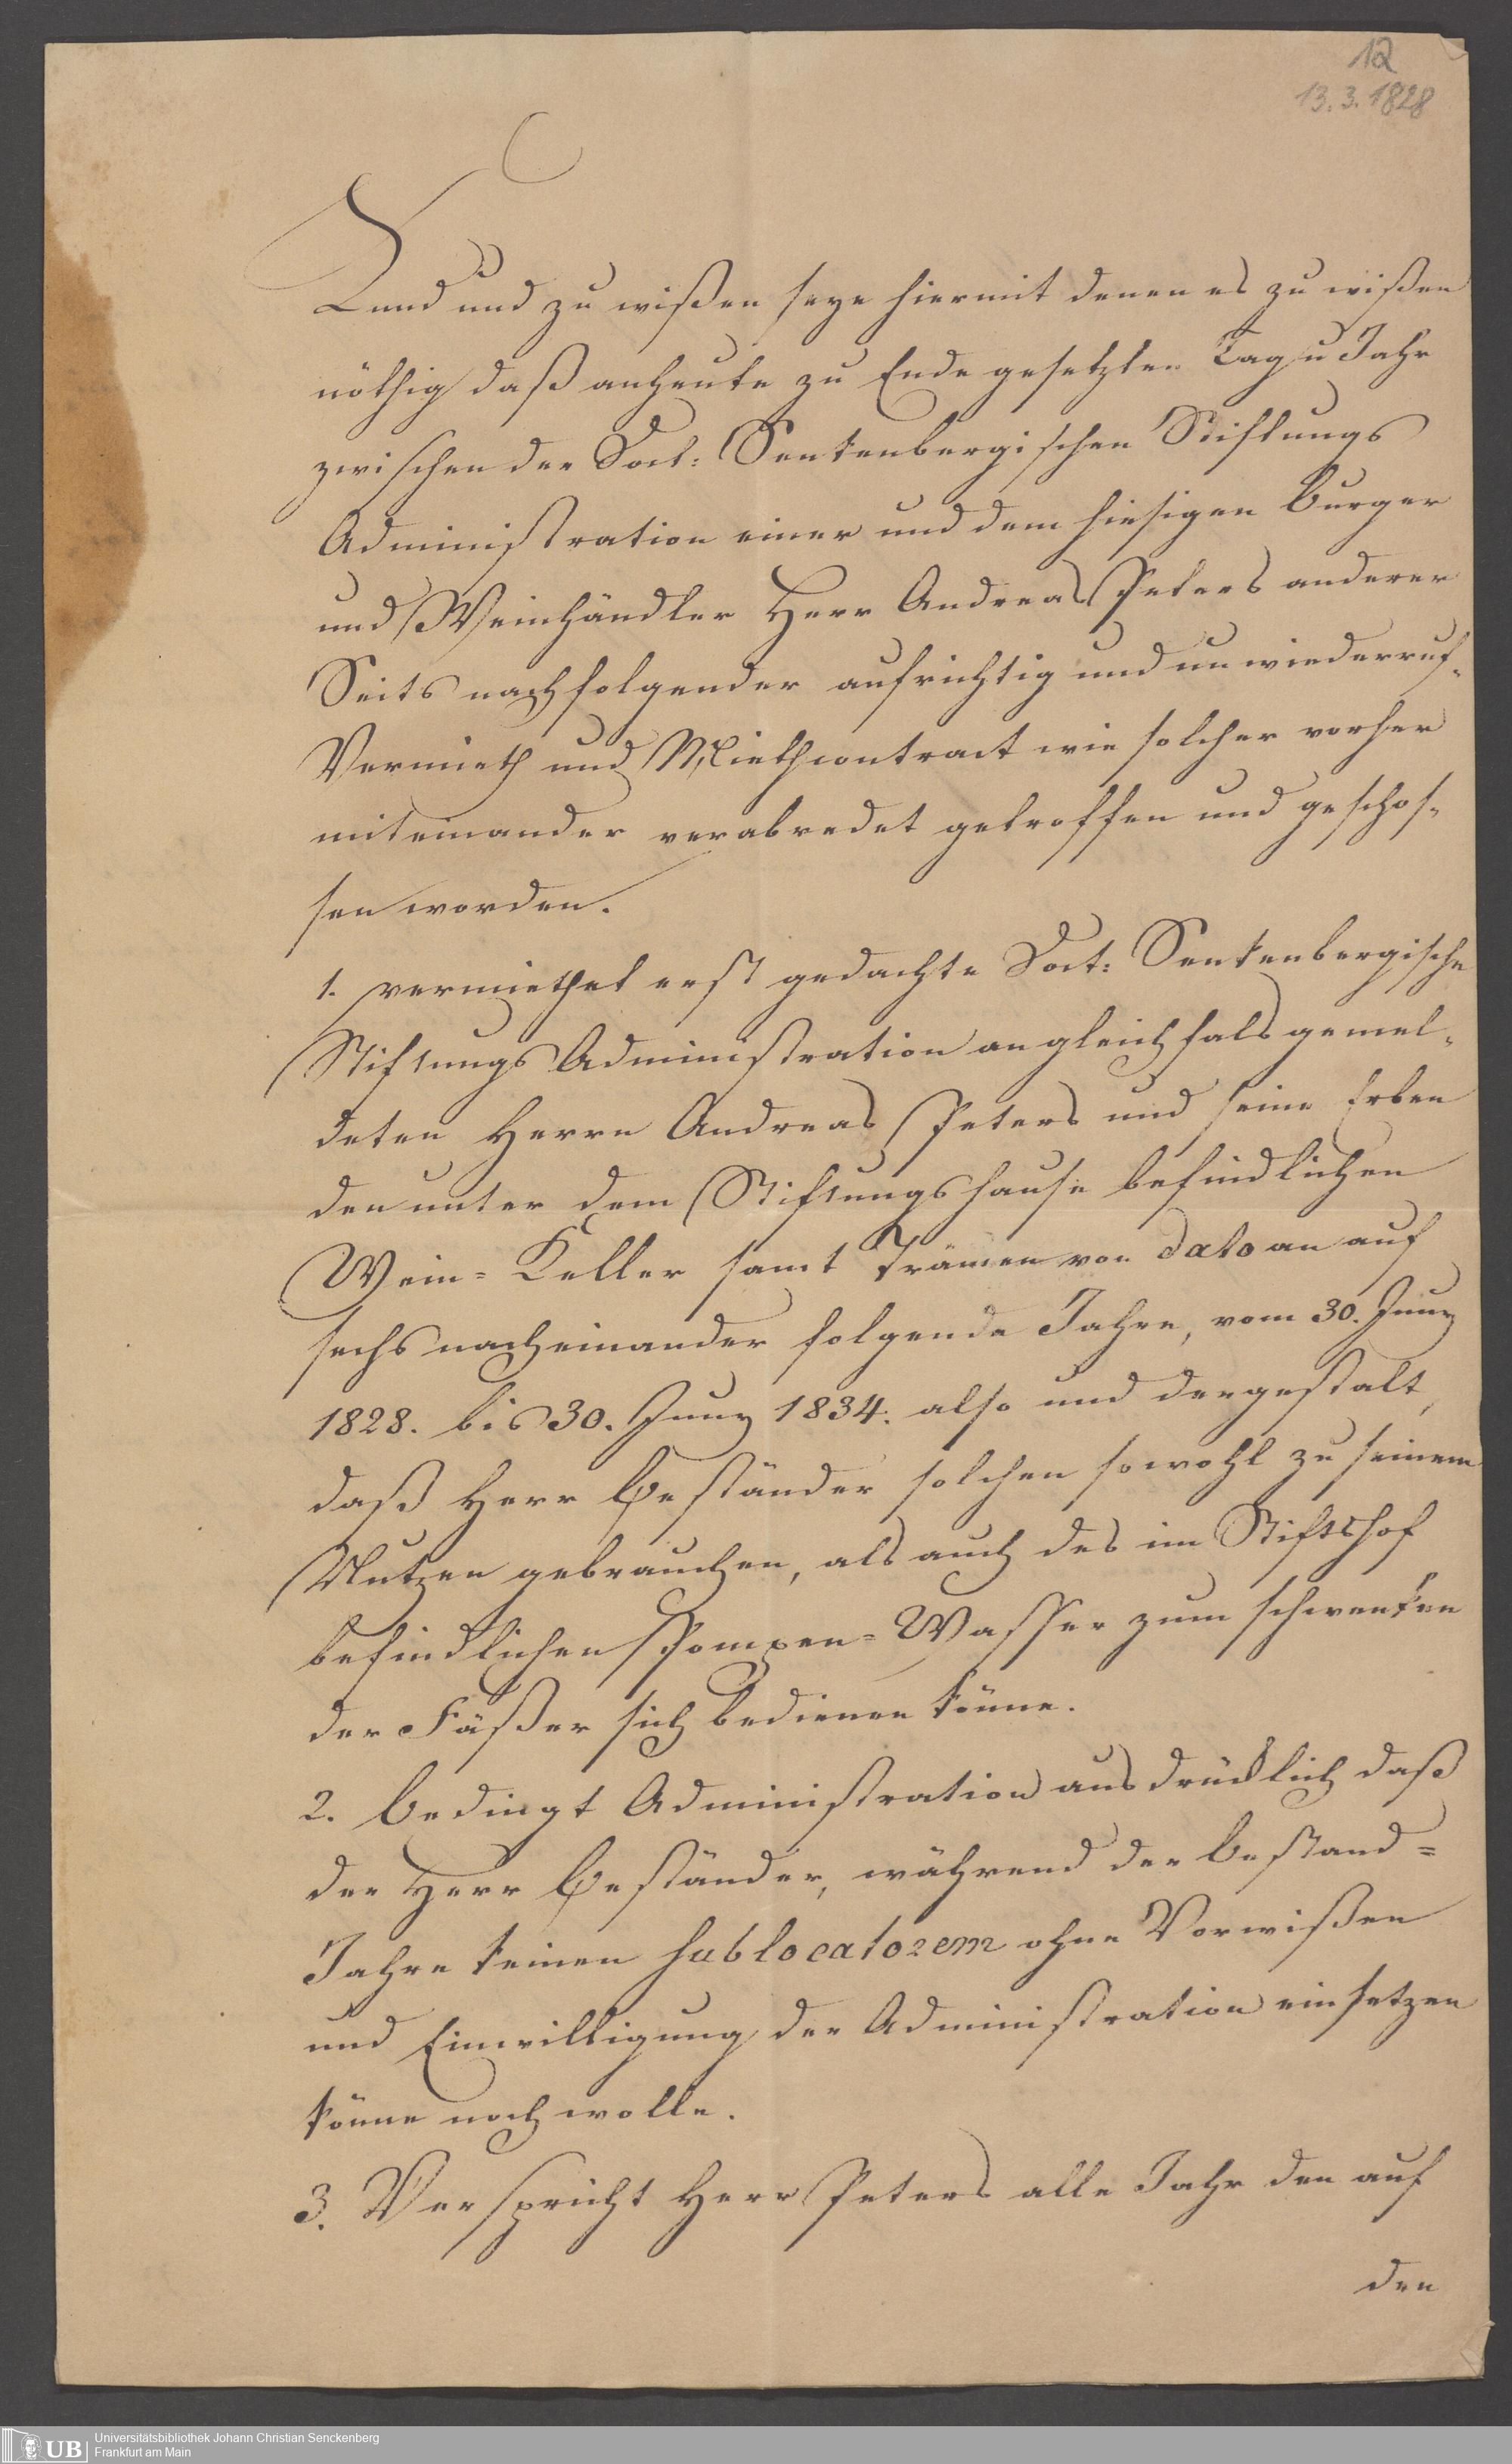 12
13.3.1828
Kund und zu wißen seye hiermit denen es zu wißen
nöthig daß anheute zu Ende gesetzten Tag u Jahr
zwischen der Doct: Senkenbergischen Stiftungs
Administration einer und dem hiesigen Burger
und Weinhändler Herr Andreas Peters anderer
Seits nachfolgender aufrichtig und unwiederruf-
Vermieth und Miethcontract wie solcher vorher
miteinander verabredet getroffen und geschos-
sen worden.
1. vermiethet erst gedachte Doct: Senkenbergische
Stiftungs Administration an gleichfals gemel-
deten Herrn Andreas Peters und seine Erben
den unter dem Stiftungshause befindlichen
Wein-Keller samt Främen von dato an auf
sechs nacheinander folgende Jahre, vom 30. Juny
1828. bis 30. Juny 1834. also und dergestalt,
daß Herr Beständer solchen sowohl zu seinem
Nutzen gebrauchen, als auch des im Stiftshof
befindlichen Pompen-Wasser zum schwenken
der Fäßer sich bedienen könne.
2. bedingt Administration ausdrücklich daß
der Herr Beständer, während der Bestand-
Jahre keinen sublocatorem ohne Vorwißen
und Einwilligung der Administration einsetzen
könne noch wolle.
3. Verspricht Herr Peters alle Jahr den auf
den
UB
Universitätsbibliothek Johann Christian Senckenberg
Frankfurt am Main